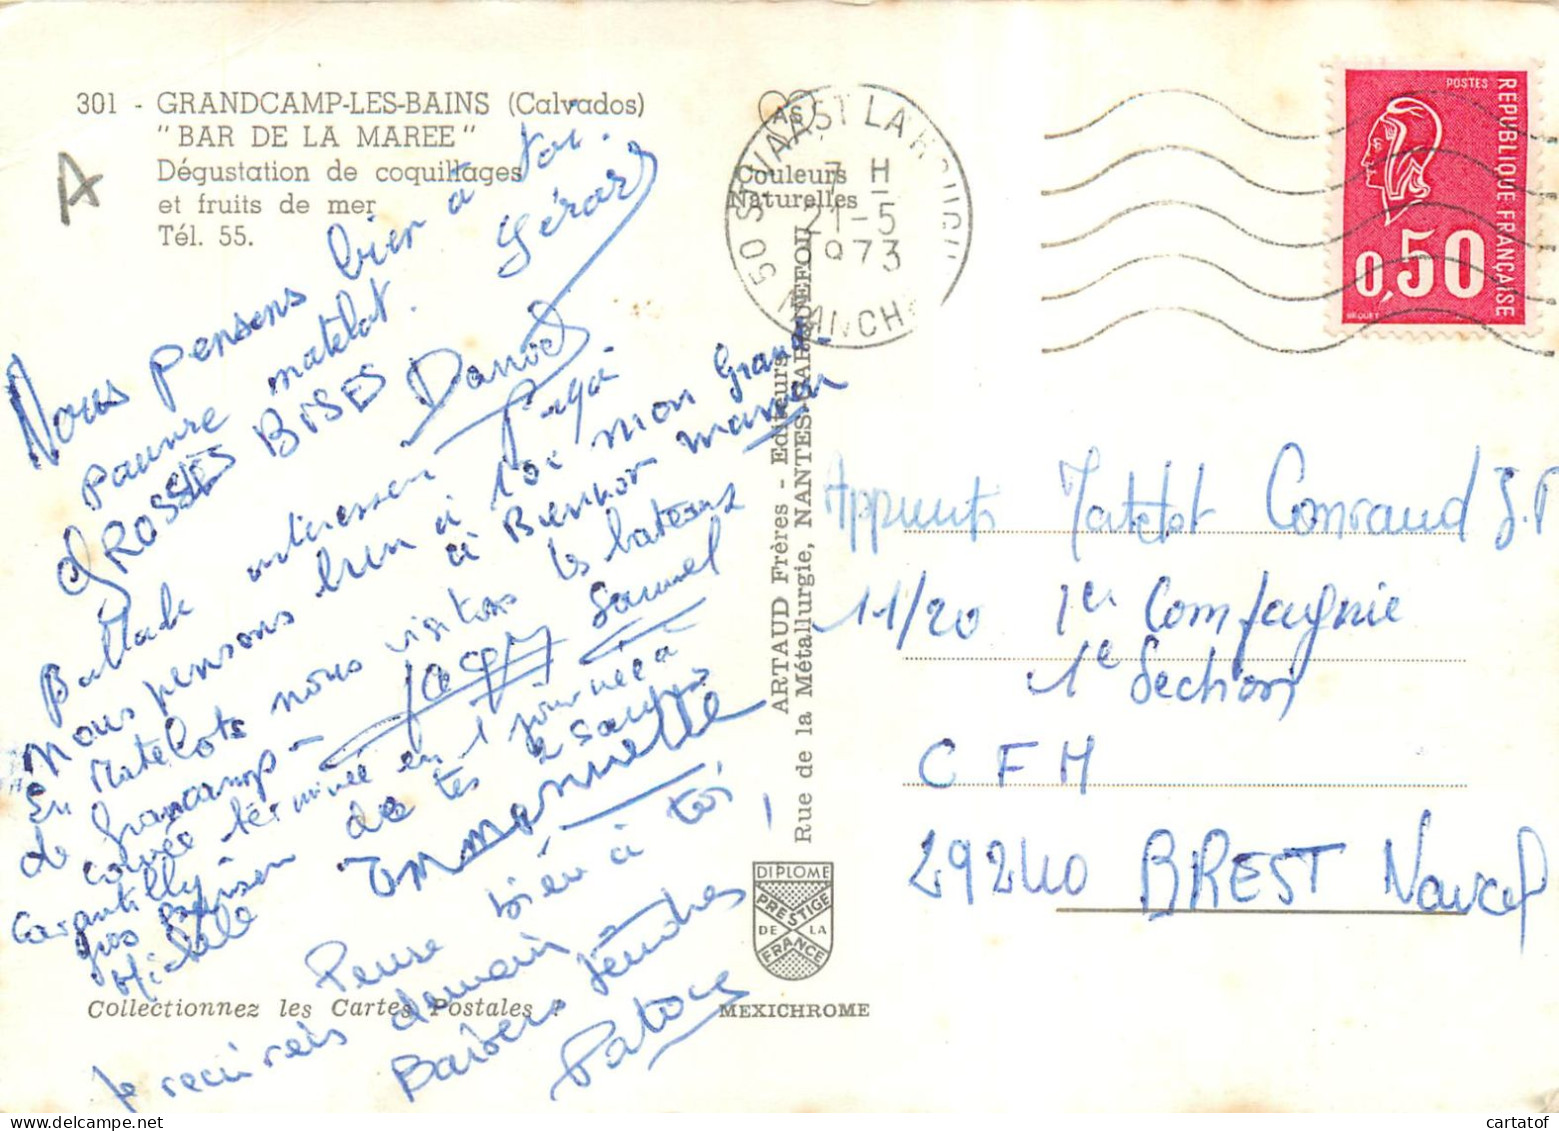 301 - GRANDCAMP-LES-BAINS (Calvados)
"BAR DE LA MAREE"
Dégustation de coquillages
et fruits de mer
Tél. 55.
A
Nous pensons bien à toi.
pauvre matelot. Gérard
GROSSES BISES Daniel
Ballade intéressante
nous pensons bien à toi mon grand
à Bientôt maman
En Matelots nous visitons les bateaux
de Grancamp - Jacques Samuel
corvée terminée en 1 journée à
Carantilly
gros de tes
Michèle
Emmanuelle
Pense bien à toi,
Je récrirais demain
Baisers tendres
Patou
Collectionnez les Cartes Postales
As
Couleurs
Naturelles
50 ST VAAST LA HOUGUE
7 H
21-5
1973
MANCHE
ARTAUD Frères - Editeurs
Rue de la Métallurgie, NANTES-CARQUEFOU
DIPLOME
PRESTIGE
DE LA
FRANCE
MEXICHROME
POSTES
REPUBLIQUE FRANÇAISE
0,50
BEQUET
Apprenti Matelot Conraud J.P
11/20 1er Compagnie
1e Section
C F M
29240 BREST Naval
cartatof